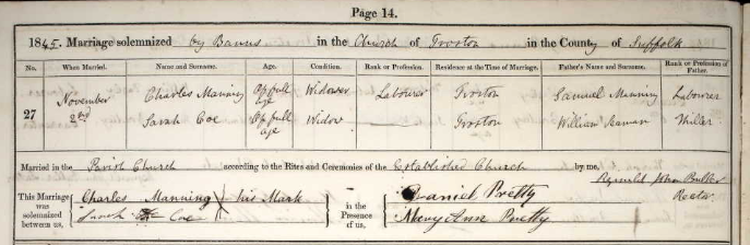 Page 14.
1845. Marriage solemnized by Banns in the Church of Troston in the County of Suffolk
No. When Married. Name and Surname. Age. Condition. Rank or Profession. Residence at the Time of Marriage. Father's Name and Surname. Rank or Profession of Father.
27 November 2nd Charles Manning Of full age Widower Labourer Troston Samuel Manning Labourer
Sarah Coe Of full age Widow Troston William Seaman Miller
Married in the Parish Church according to the Rites and Ceremonies of the Established Church by me,
Reginald John Butler
Rector
This Marriage was solemnized between us, Charles Manning his Mark in the Presence of us, Daniel Pretty
Sarah Coe Mary Ann Pretty